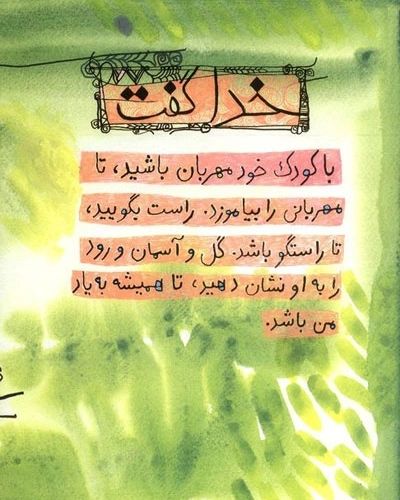 خدا گفت
با کودک خود مهربان باشید، تا
مهربانی را بیاموزد. راست بگویید،
تا راستگو باشد. گل و آسمان و رود
را به او نشان دهید، تا همیشه به یاد
من باشد.